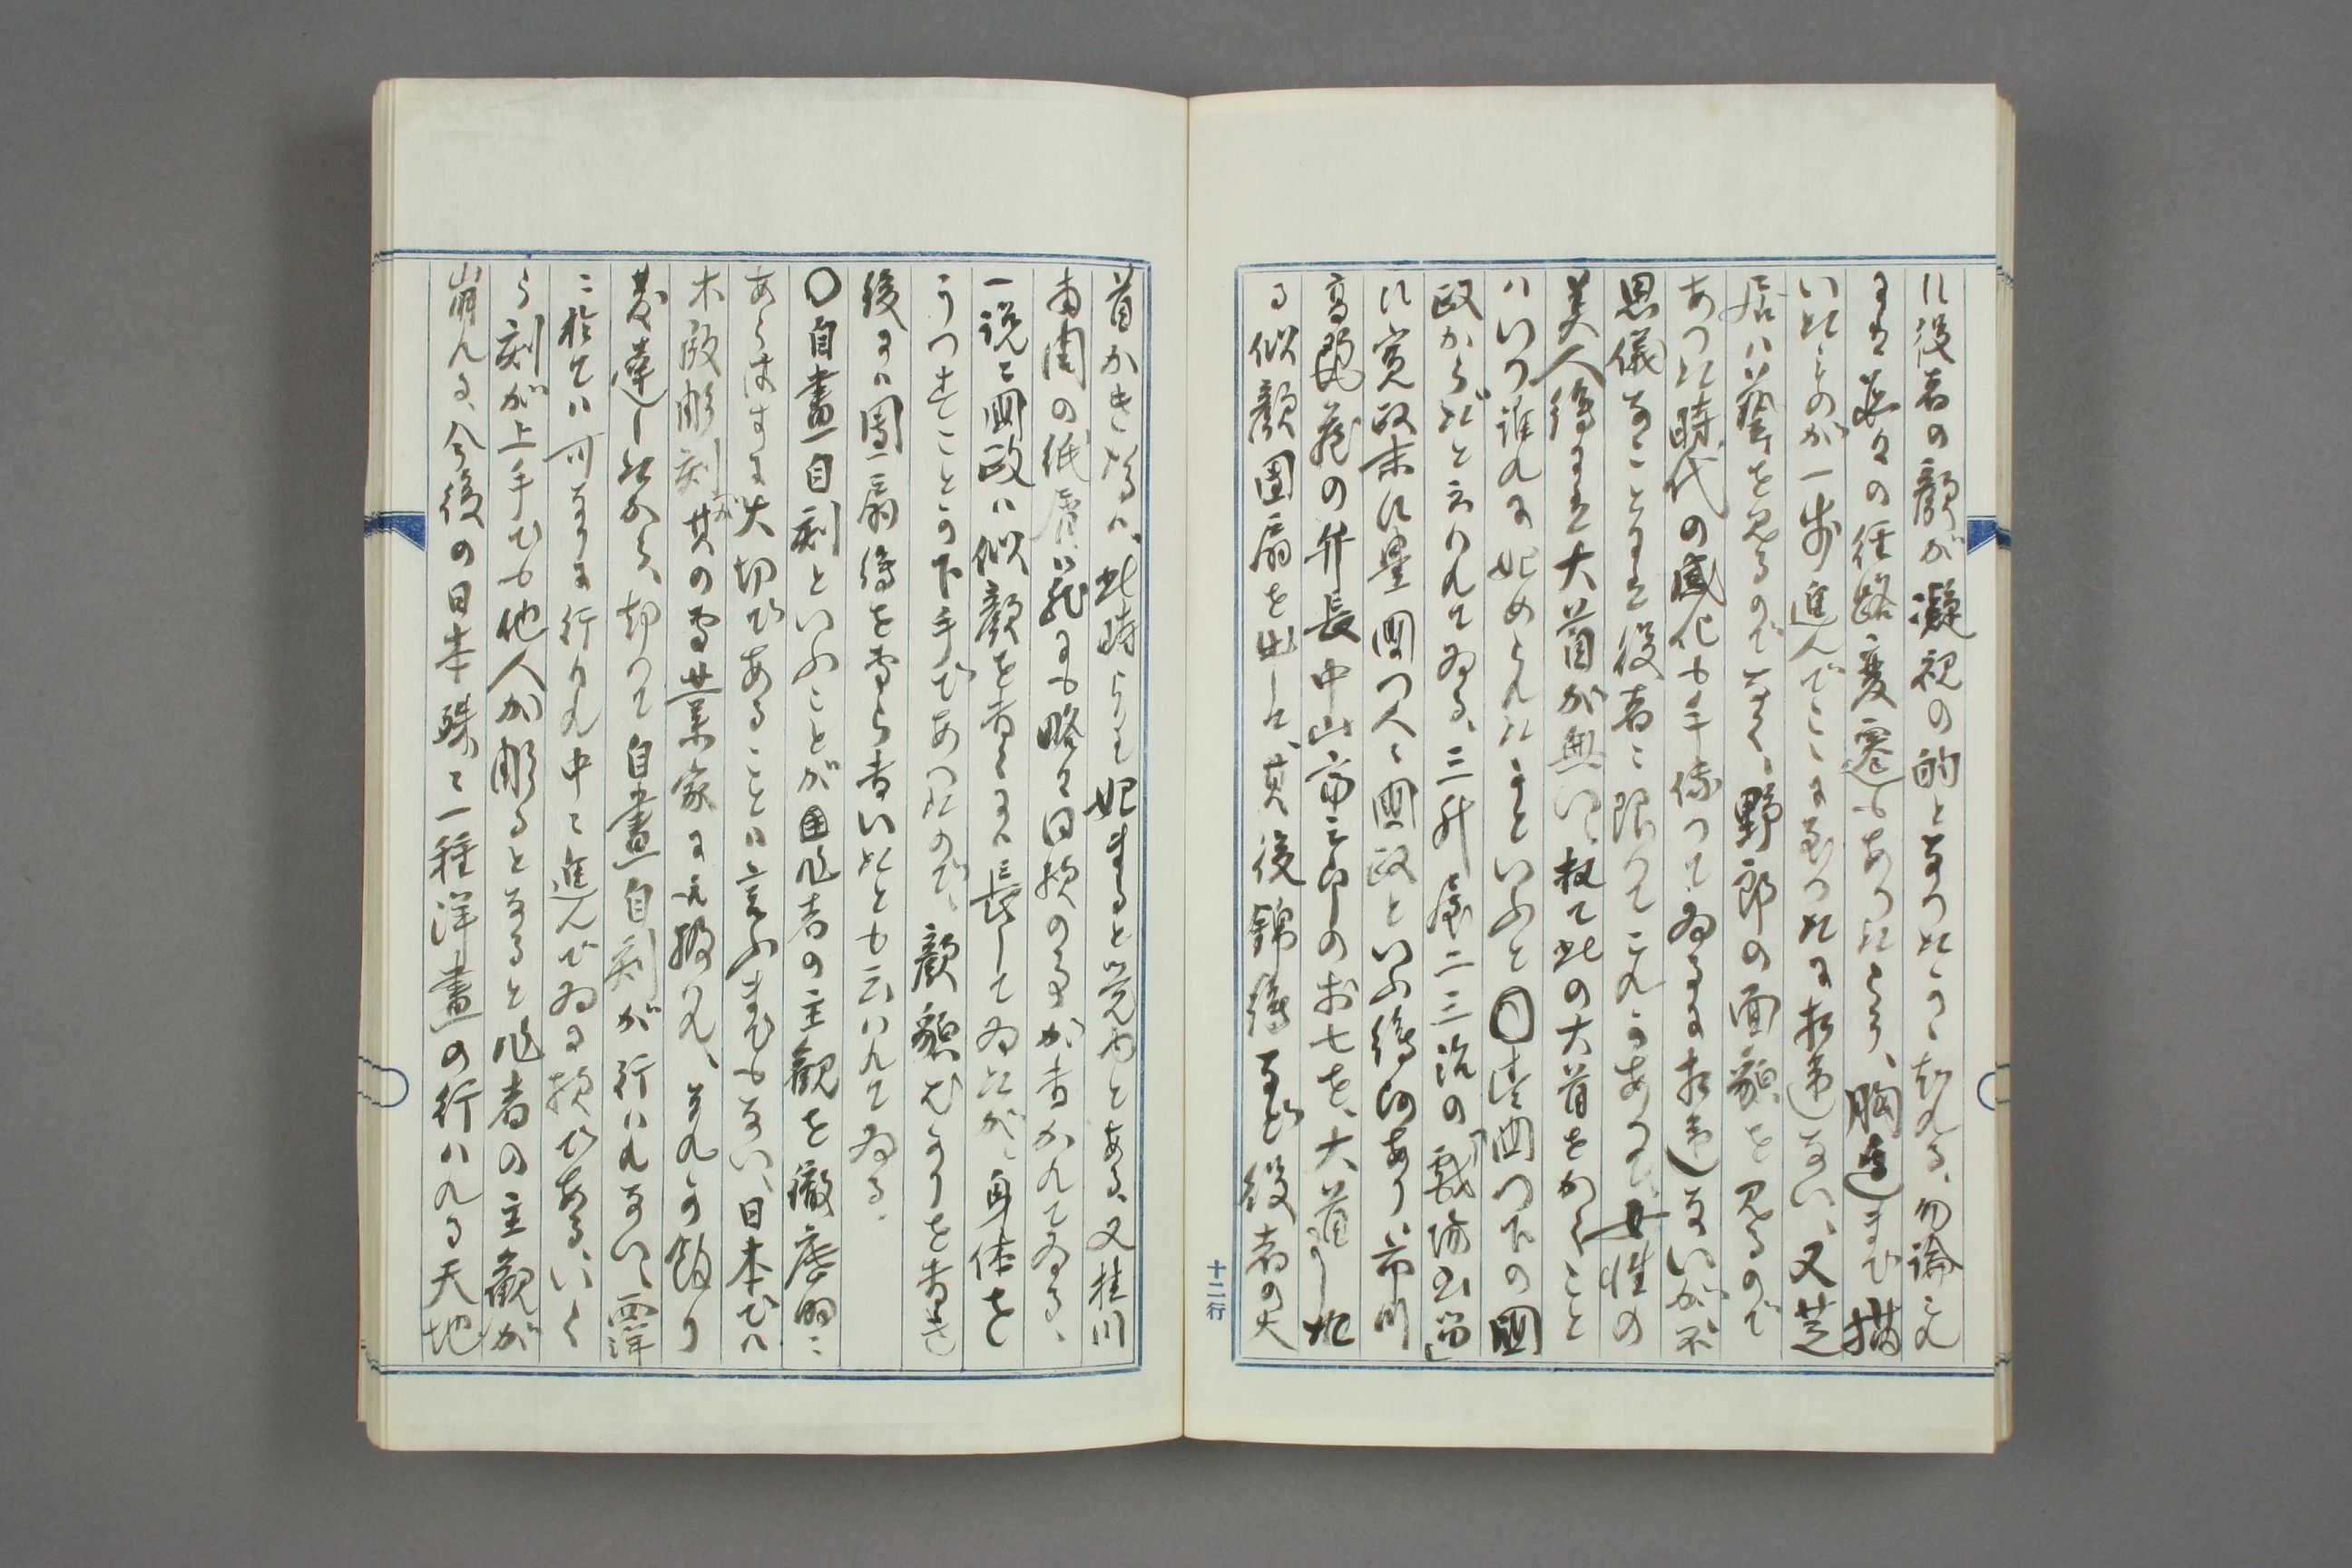 に役者の顔が凝視の的となつたこと起れる、勿論これ
までは夫々の径路変遷もあつたらう、胸迄まで描
いたものが一歩進んでこゝまで至つたに相違ない、又芝
居ハ藝を見るので無く、野郎の面貌を見るので
あつた時代の感化も手傳つてゐるに相違ないが不
思儀なことには役者に限つてこれがあつて、女性の
美人絵には大首が無い、扨て此の大首をかくこと
ハいつ誰れに始められたかといふと〇豊国門下の国
政からだと云われてゐる、三升屋二三治の「戯場書留」
に寛政末に豊国門人ニ国政といふ絵師あり、市川
高麗蔵の弁長中山富三郎のお七を、大首うし
る似顔團扇を出した、其後錦絵など役者の大
首かきたるハ、此時よりも始まると覚ゆとある、又桂川
甫周の紙屑籠にも略々同様のことが書かれてゐる、
一説に国政ハ似顔を書くには長してゐたが、身体を
うつすことの下手であつたので、顔貌ばかりを書き
後には團扇絵を専ら書いたとも云ハれてゐる。
〇自畫自刻といふことが作者の主観を徹底的に
あらはすに大切であることは言ふまでもない、日本でハ
木版彫刻が其の専業家に武揚られ、それが餘り
発達したから、却つて自畫自刻が行ハれない、西洋
に於てハ可なりに行われ中々進んでゐる様である、いく
ら刻が上手でも他人が彫るとなると作者の主観が
崩れる、今後の日本殊に一種洋畫の行ハれる天地
十二行